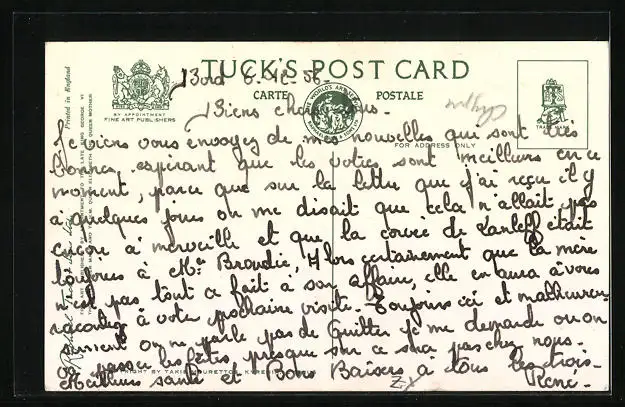 TUCK'S POST CARD
CARTE POSTALE
BY APPOINTMENT
FINE ART PUBLISHERS
FOR ADDRESS ONLY
Printed in England
Bord 6. 56.
Biens chers vous.
Je viens vous envoyez de mes nouvelles qui sont très
bonnes, espérant que les votres sont meilleurs en ce
moment, parce que sur la lettre que j'ai reçu il y
à quelques jours on me disait que cela n'allait pas
encore à merveille et que la corvée de était
toujours à Me , Alors certainement que la mère
n'est pas tout a fait à son affaire, elle en aura à vous
raconter à votre prochaine visite. Toujours ici et malheureu-
sement on ne parle pas de Quitter je me demande ou on
va passer les fêtes, presque sur ce sera pas chez nous.
Meilleurs santé et Bons Baisers à tous les trois.
René.